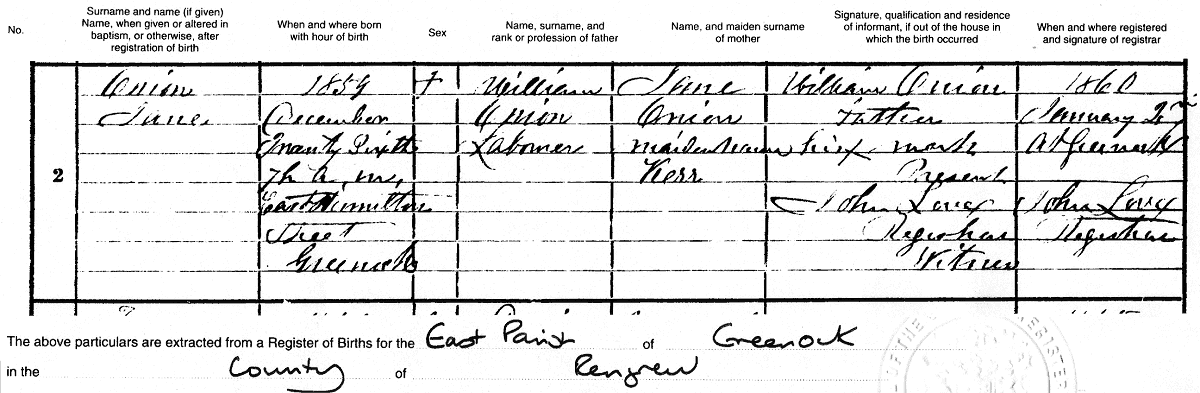 No.
Surname and name (if given)
Name, when given or altered in
baptism, or otherwise, after
registration of birth
When and where born
with hour of birth
Sex
Name, surname, and
rank or profession of father
Name, and maiden surname
of mother
Signature, qualification and residence
of informant, if out of the house in
which the birth occurred
When and where registered
and signature of registrar
2
Onion
Jane
1859
December
Twenty Sixth
7h a.m.
East Hamilton
Street
Greenock
William
Onion
Labourer
Jane
Onion
maiden name
Kerr
William Onion
Father
his x mark
Present
John Love
Registrar
Witness
1860
January 2nd
At Greenock
John Love
Registrar
The above particulars are extracted from a Register of Births for the East Parish of Greenock
in the County of Renfrew
OF THE REGISTER